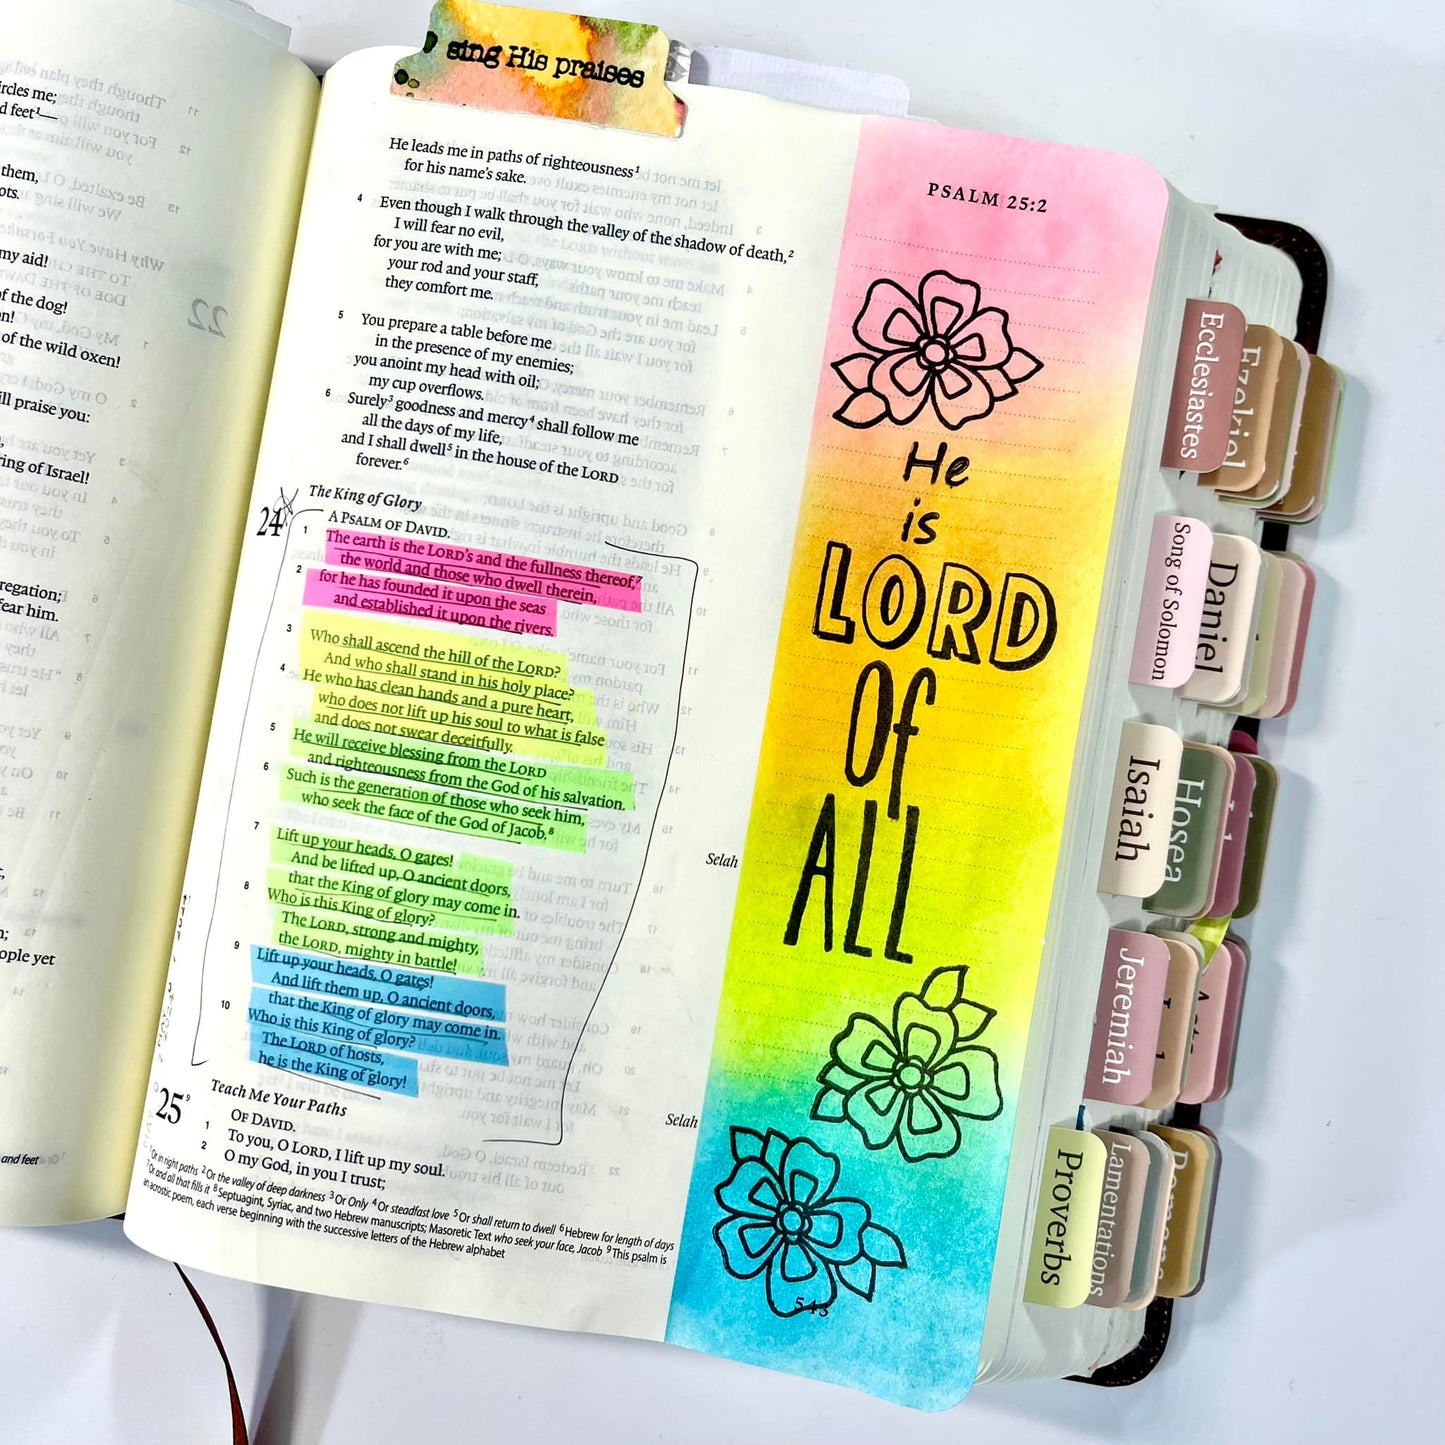 sing His praises
ircles me;
d feet¹—
them,
ots.
my aid!
f the dog!
n!
of the wild oxen!
ill praise you:
ring of Israel!
regation;
fear him.
ople yet
and feet
He leads me in paths of righteousness¹
for his name's sake.
4 Even though I walk through the valley of the shadow of death,²
I will fear no evil,
for you are with me;
your rod and your staff,
they comfort me.
5 You prepare a table before me
in the presence of my enemies;
you anoint my head with oil;
my cup overflows.
6 Surely³ goodness and mercy⁴ shall follow me
all the days of my life,
and I shall dwell⁵ in the house of the LORD
forever.⁶
The King of Glory
24 A PSALM OF DAVID.
1 The earth is the LORD's and the fullness thereof,⁷
the world and those who dwell therein,
2 for he has founded it upon the seas
and established it upon the rivers.
3 Who shall ascend the hill of the LORD?
And who shall stand in his holy place?
4 He who has clean hands and a pure heart,
who does not lift up his soul to what is false
and does not swear deceitfully.
5 He will receive blessing from the LORD
and righteousness from the God of his salvation.
6 Such is the generation of those who seek him,
who seek the face of the God of Jacob.⁸
Selah
7 Lift up your heads, O gates!
And be lifted up, O ancient doors,
that the King of glory may come in.
8 Who is this King of glory?
The LORD, strong and mighty,
the LORD, mighty in battle!
9 Lift up your heads, O gates!
And lift them up, O ancient doors,
that the King of glory may come in.
10 Who is this King of glory?
The LORD of hosts,
he is the King of glory!
Selah
Teach Me Your Paths
25⁹ OF DAVID.
1 To you, O LORD, I lift up my soul.
2 O my God, in you I trust;
¹Or in right paths ²Or the valley of deep darkness ³Or Only ⁴Or steadfast love ⁵Or shall return to dwell ⁶Hebrew for length of days
⁷Or and all that fills it ⁸Septuagint, Syriac, and two Hebrew manuscripts; Masoretic Text who seek your face, Jacob ⁹This psalm is
an acrostic poem, each verse beginning with the successive letters of the Hebrew alphabet
PSALM 25:2
He
is
LORD
Of
ALL
543
Ecclesiastes
Ezekiel
Song of Solomon
Daniel
Isaiah
Hosea
Jeremiah
Proverbs
Lamentations
Romans